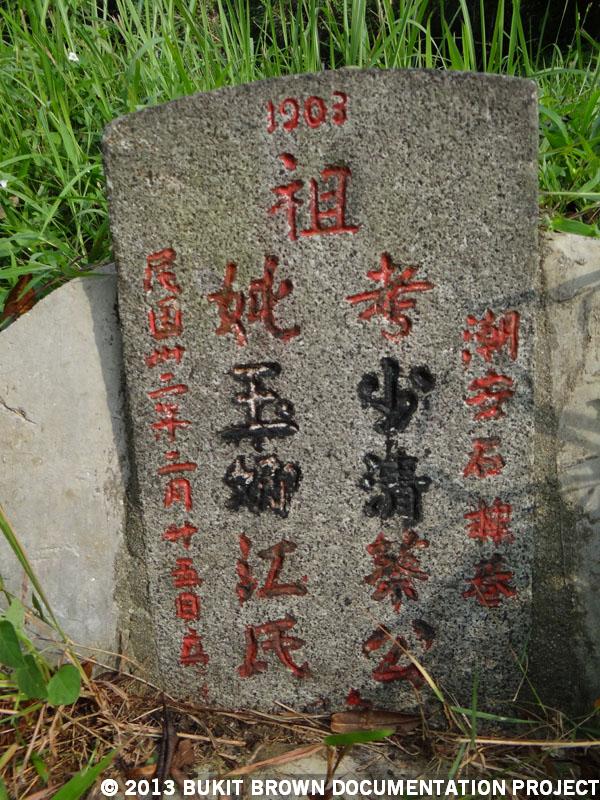 1903
祖
潮安石
考少清蔡公
妣玉江氏
民国卅二年二月廿五日立
© 2013 BUKIT BROWN DOCUMENTATION PROJECT